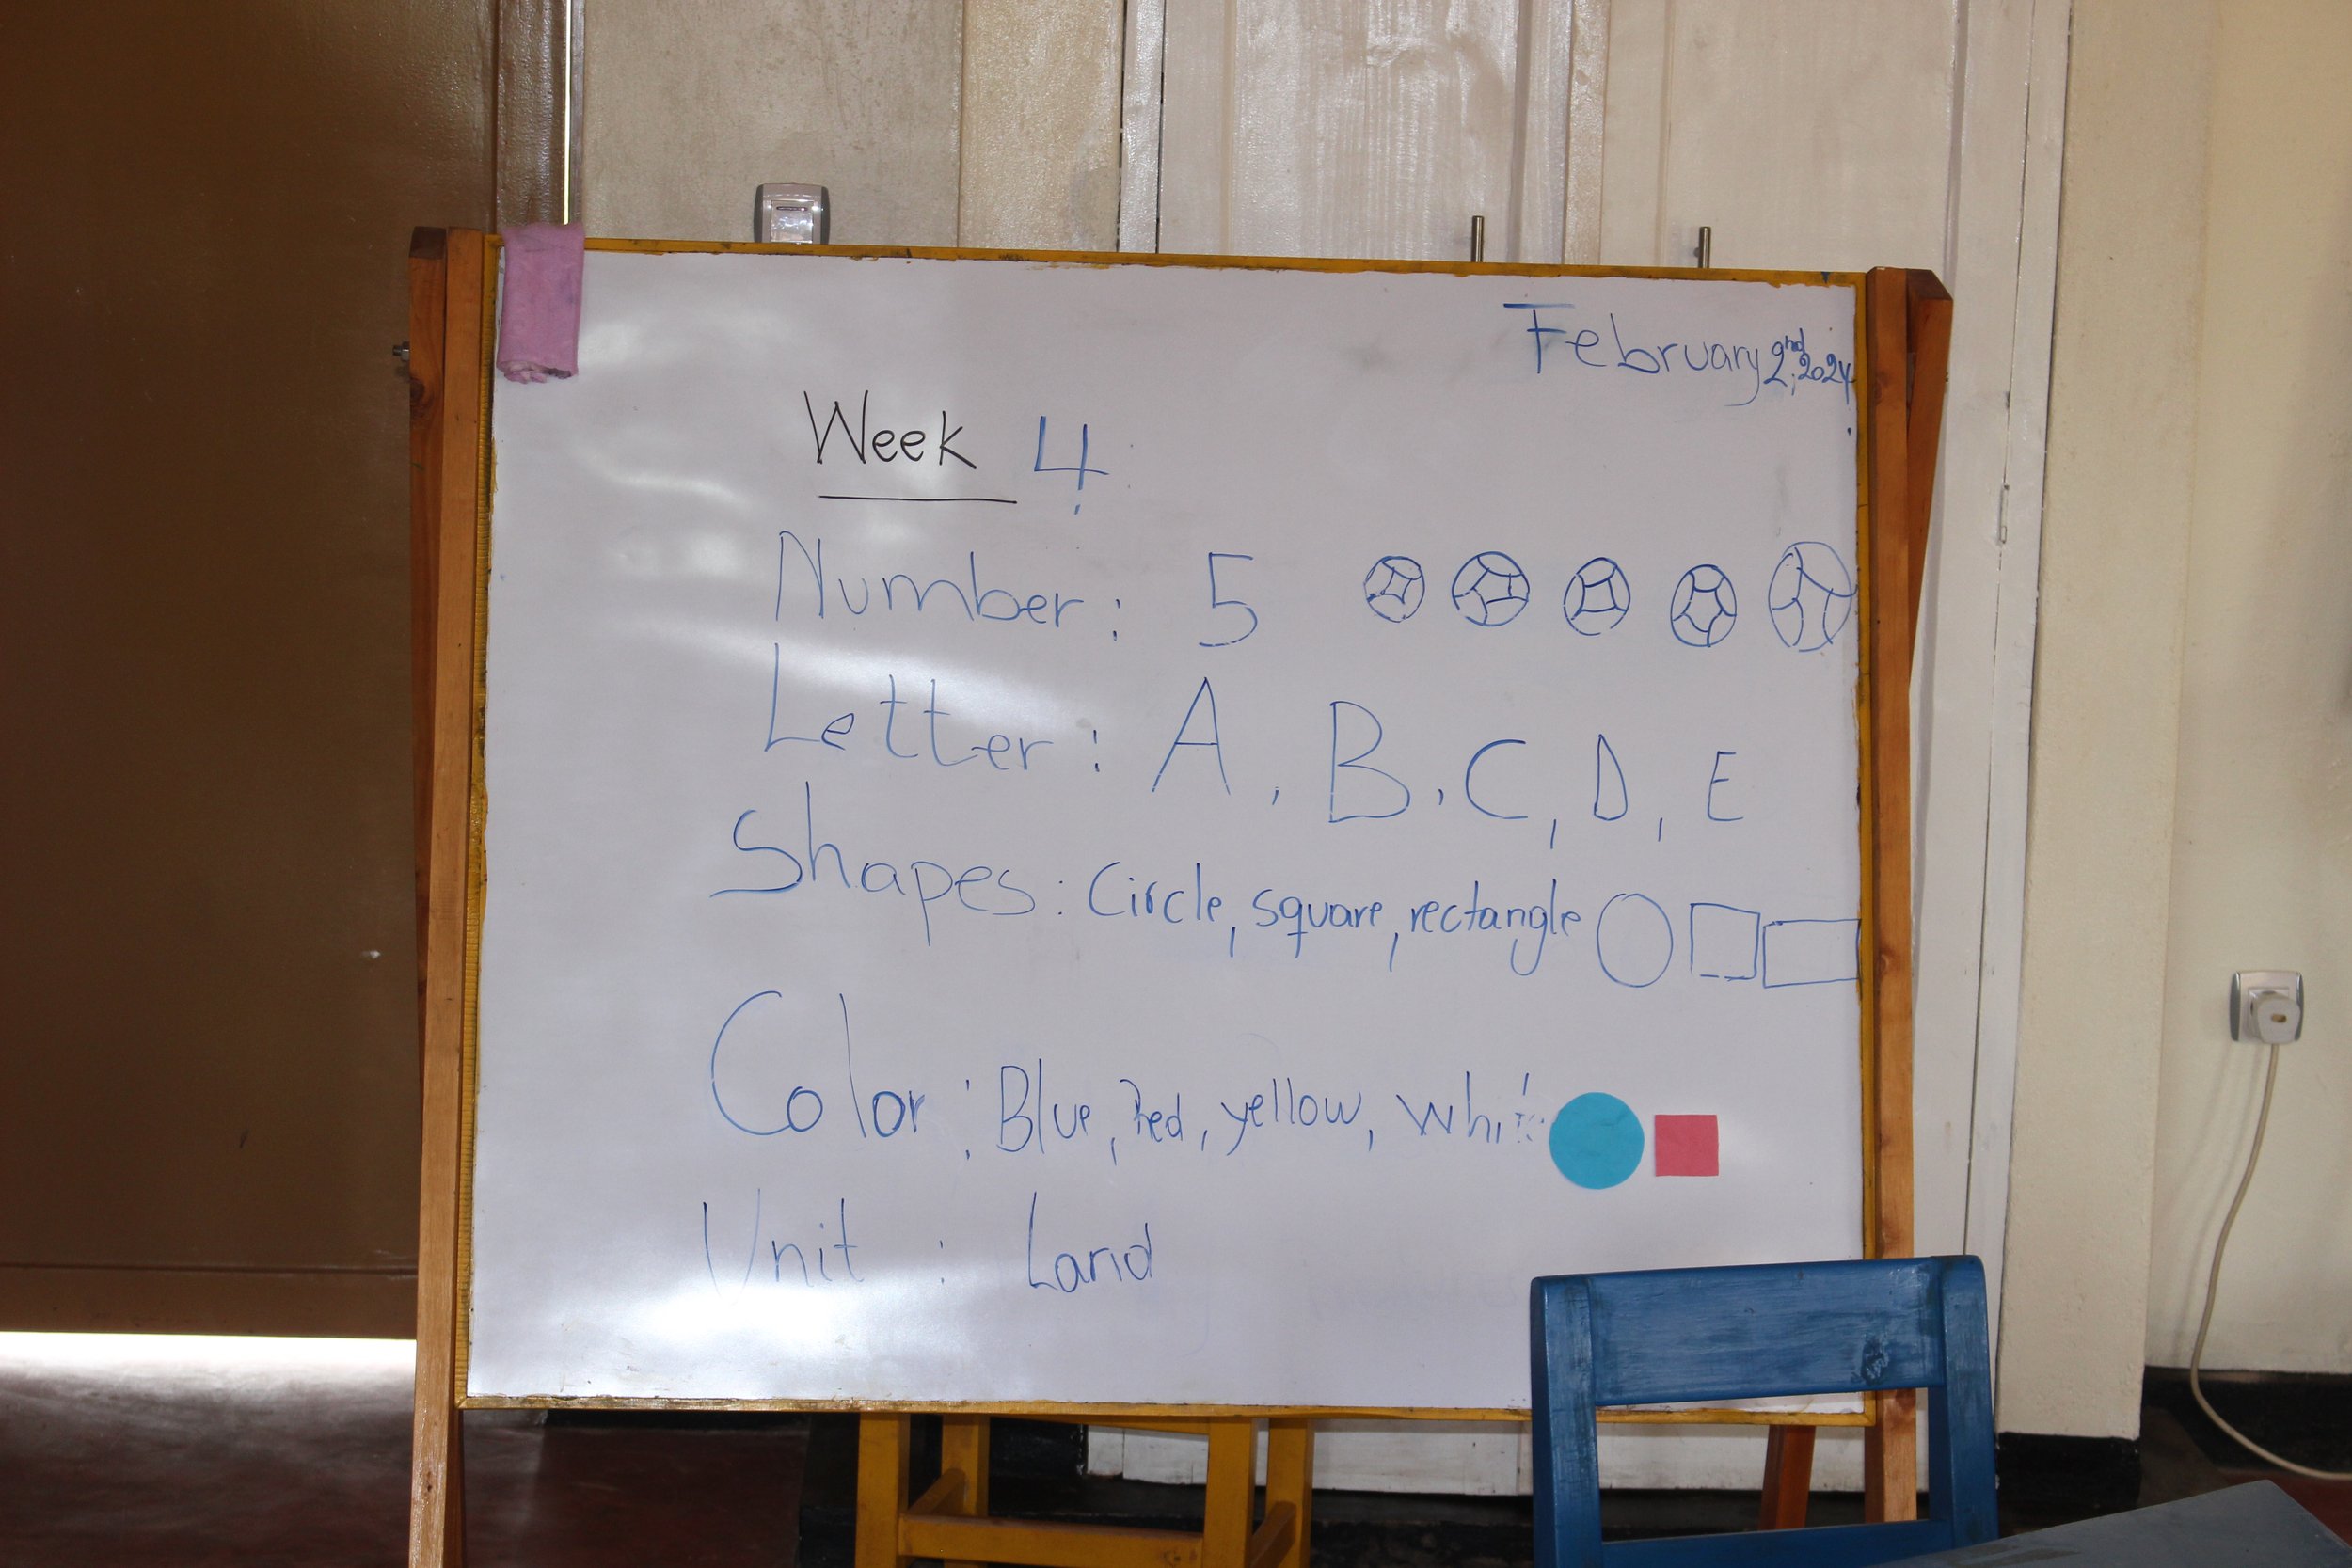 February 2nd, 2024
Week 4
Number: 5
Letter: A, B, C, D, E
Shapes: Circle, square, rectangle
Color: Blue, Red, yellow, White
Unit: Land